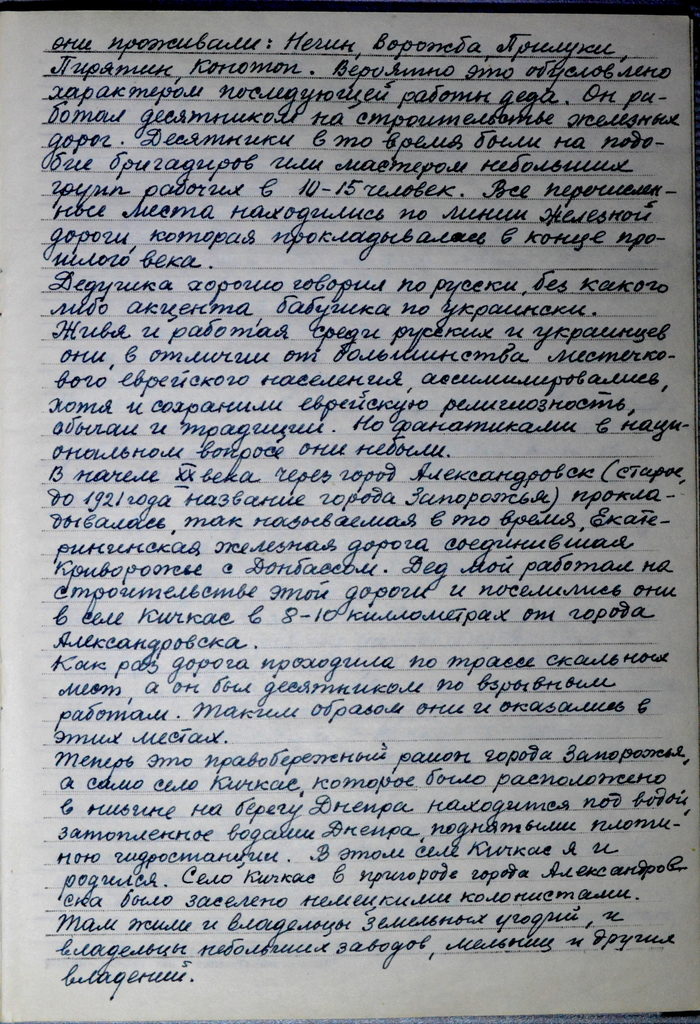 они проживали: Нечин, Ворожба, Прилуки,
Пирятин, Конотоп. Вероятно это обусловлено
характером последующей работы деда. Он ра-
ботал десятником на строительстве железных
дорог. Десятники в то время были на подо-
бие бригадиров или мастером небольших
групп рабочих в 10-15 человек. Все перечислен-
ные места находились по линии железной
дороги, которая прокладывалась в конце про-
шлого века.
Дедушка хорошо говорил по русски, без какого
либо акцента, бабушка по украински.
Живя и работая среди русских и украинцев
они, в отличии от большинства местечко-
вого еврейского населения, ассимилировались,
хотя и сохранили еврейскую религиозность,
обычаи и традиции. Но фанатиками в наци-
ональном вопросе они небыли.
В начале XX века через город Александровск (старое,
до 1921 года название города Запорожья) прокла-
дывалась, так называемая в то время, Екате-
рингинская железная дорога соединившая
Криворожье с Донбассом. Дед мой работал на
строительстве этой дороги и поселились они
в селе Кичкас в 8-10 километрах от города
Александровска.
Как раз дорога проходила по трассе скальных
мест, а он был десятником по взрывным
работам. Таким образом они и оказались в
этих местах.
Теперь это правобережный район города Запорожья,
а само село Кичкас, которое было расположено
в низине на берегу Днепра находится под водой,
затопленное водами Днепра, поднятыми плоти-
ною гидростанции. В этом селе Кичкас я и
родился. Село Кичкас в пригороде города Александров-
ска было заселено немецкими колонистами.
Там жили и владельцы земельных угодий, и
владельцы небольших заводов, мельниц и других
владений.